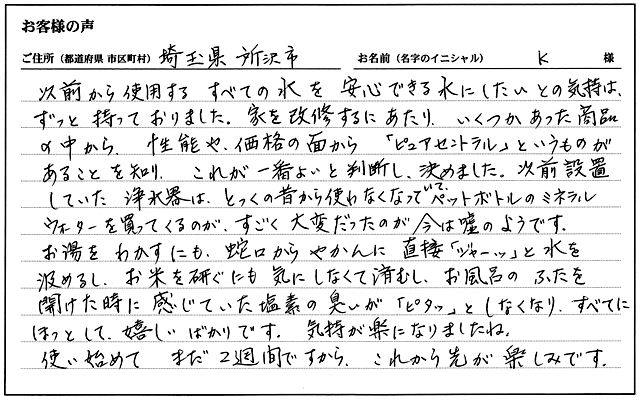 お客様の声
ご住所（都道府県 市区町村） 埼玉県 所沢市 お名前（名字のイニシャル） K 様
以前から使用する すべての水を 安心できる水にしたいとの気持は、
ずっと 持っておりました。家を改修するにあたり、いくつかあった商品
の中から、性能や、価格の面から 「ピュアセントラル」というものが
あることを知り、これが一番よいと判断し、決めました。以前設置
していた 浄水器は、とっくの昔から使わなくなっていて、ペットボトルのミネラル
ウォーターを買ってくるのが、すごく 大変だったのが 今は嘘のようです。
お湯を わかすにも、蛇口から やかんに 直接「ジャーッ」と水を
汲めるし、お米を研ぐにも 気にしなくて済むし、お風呂の ふたを
開けた時に 感じていた塩素の 臭いが「ピタッ」と しなくなり、すべてに
ほっとして、嬉しい ばかりです。 気持が楽になりましたね。
使い始めて まだ 2週間ですから、これから先が 楽しみです。